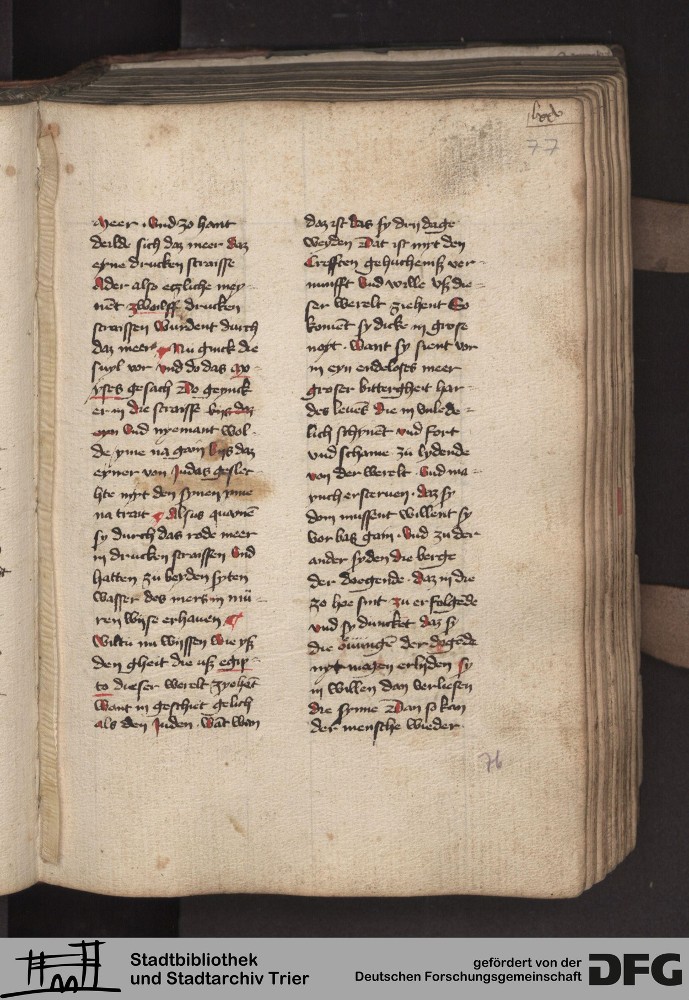 lxxv
77
meer · Und zo hant
deilde sich daz meer daz
eyne drucken straisse
Ader also etzliche mey-
nēt zwoilff drucken
straissen wurdent durch
daz meer Nu ginck die
suyl vor und do das mo
yses gesach Do geynck
er in die straisse byß daz
eyn Und nyemant wol-
de yme na gain byß daz
eyner von Judas geslec-
hte myt den synen yme
na trait Alsus quamē
sy durch das rode meer
in drucken straissen Und
hatten zu beyden syten
wasser des mers in mü-
ren wyse erhauen
Wiltu nu wyssen wie yß
den gheit die uß egip-
to dieser werelt zyehēt
Want in geschiet gelich
als den Juden · Wāt wan
daz ist das sy den dage
werden Dat ist myt den
Crefften gehuchenisß ver-
nunfft Und wille uß die-
ser werelt ziehent So
komēt sy dicke in grose
noyt · Want sy sient vor
in eyn endeloses meer
groser bittergheit har-
des leuēs die in unlede-
lich schynēt und fort
und schame zu lydende
von der werelt · Und ma-
ynch ersteruen · daz sy
dom mussent willent sy
vor bas gain · Und zu der
ander syden die berge
der doegende · daz in die
zo hoe sint zu erfolgēde
und sy duncket daz sy
die öuüngē der dogēde
nyt mogen erlyden sy
in willen dan verliesen
die synne Dan so kan
der mensche wieder
76
Stadtbibliothek
und Stadtarchiv Trier
gefördert von der
Deutschen Forschungsgemeinschaft
DFG